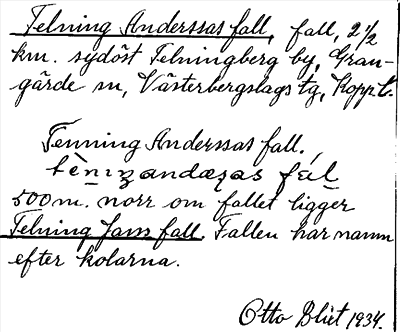 Telning Anderssas fall, fall, 2 1/2
km. sydöst Telningberg by, Gran-
gärde sn, Västerbergslags tg, Kopp.l.
Tenning Anderssas fall.
500 m. norr om fallet ligger
Telning Jans fall. Fallen har namn
efter kolarna.
Otto Blixt 1934.